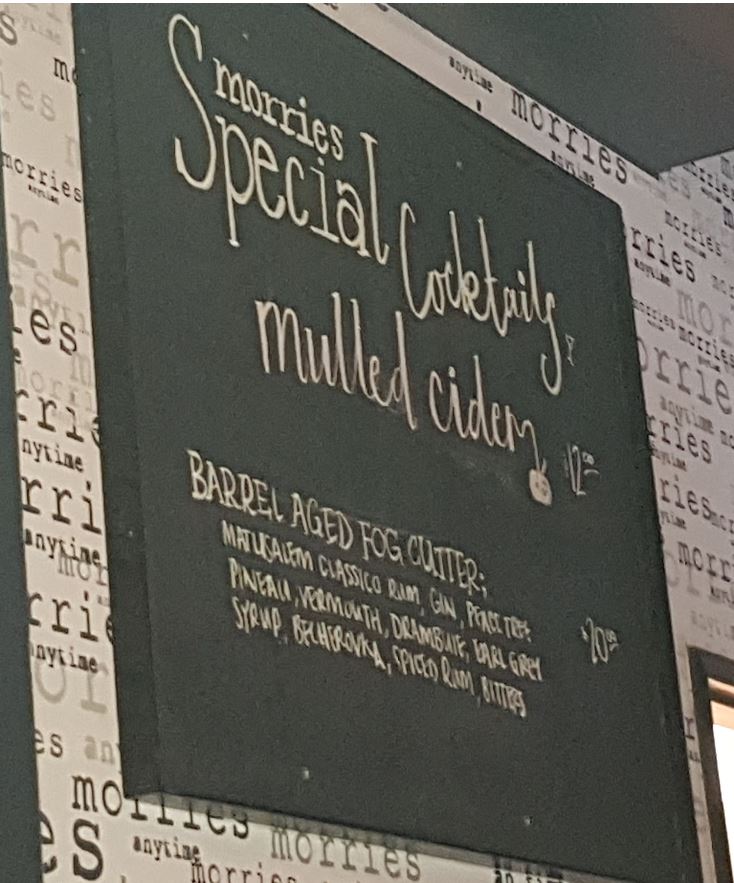 morries
Special
Cocktails
mulled cider
$12.00
BARREL AGED FOG CUTTER;
MATUSALEM CLASSICO RUM, GIN, PEACE TREE
PINEAU, VERMOUTH, DRAMBUIE, EARL GREY
SYRUP, BECHEROVKA, SPICED RUM, BITTERS
$20.00
anytime
morries
anytime
morries
anytime
morries
rries
anytime
morries
morries
anytime
rries
anytime
morries
anytime
morries
anytime
morries